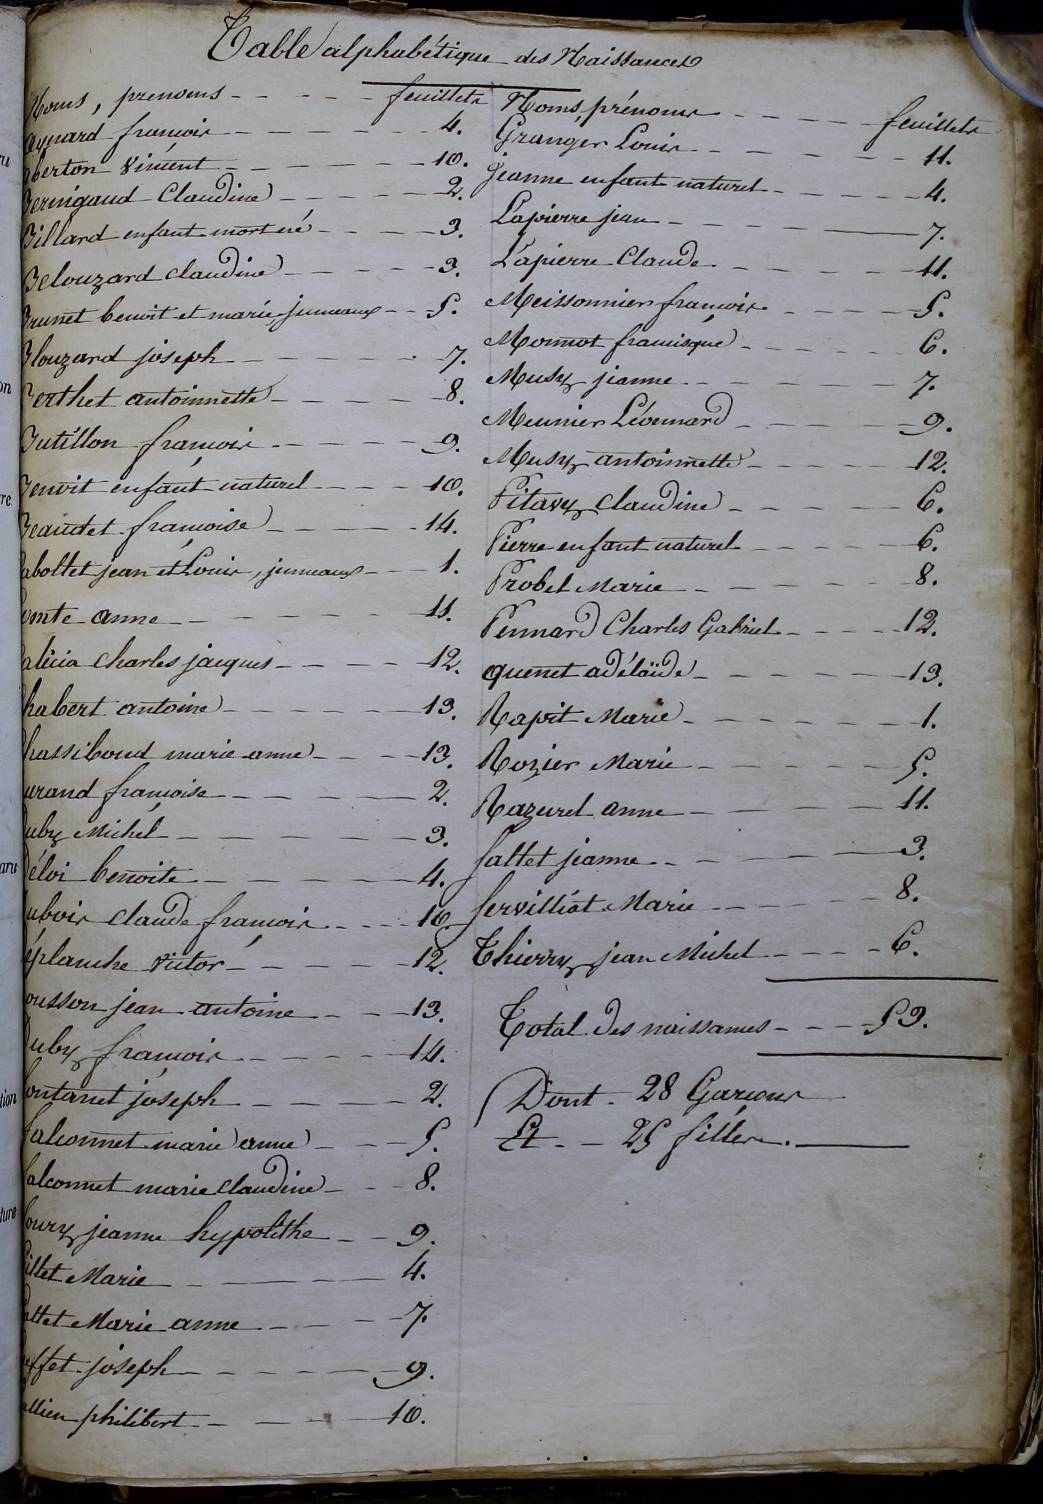 Table alphabétique des Naissances
Noms, prenoms - - - - feuillets
aynard françois - - - - - - 4.
berton Vincent - - - - - - 10.
Beringaud Claudine - - - - - 2.
Billard enfant mort né - - - - 3.
Belouzard claudine - - - - - 3.
Brunet benoit et marie jumeaux - - 5.
Blouzard joseph - - - - - - 7.
Berthet antoinnette - - - - - 8.
Butillon françois - - - - - 9.
Benoit enfant naturel - - - - 10.
Beaudet françoise - - - - - 14.
aboltet jean et Louis, jumeaux - - - 1.
omte anne - - - - - - 11.
alicia charles jacques - - - - 12.
habert antoine - - - - - - 13.
hassiboud marie anne - - - - 13.
urand françoise - - - - - - 2.
uby Michel - - - - - - 3.
Déloi benoite - - - - - - 4.
ubois claude françois - - - - 10.
éplanche Victor - - - - - 12.
ousson jean antoine - - - - 13.
Duby françois - - - - - - 14.
ontanet joseph - - - - - 2.
falconnet marie anne - - - 5.
alconnet marie claudine - - - 8.
oury jeanne hypolithe - - - 9.
illet Marie - - - - - 4.
attet Marie anne - - - - 7.
effet joseph - - - - - - 9.
allien philibert - - - - - 10.
Noms, prénoms - - - - - feuillets
Granger Louis - - - - - - 11.
Jeanne enfant naturel - - - - 4.
Lapierre jean - - - - - 7.
Lapierre Claude - - - - - 11.
Meissonnier françois - - - - 5.
Monnot francisque - - - - - 6.
Musy jeanne - - - - - - 7.
Meunier Léonnard - - - - - 9.
Musy antoinnette - - - - - 12.
Pitavy claudine - - - - - 6.
Pierre enfant naturel - - - - 6.
Probet Marie - - - - - 8.
Pennard Charles Gabriel - - - - 12.
quenet adélaïde - - - - - - 13.
Rapit Marie - - - - - - 1.
Rozier Marie - - - - - - 5.
Razurel anne - - - - - 11.
Sallet jeanne - - - - - 3.
Servilliat Marie - - - - - 8.
Thierry jean Michel - - - - 6.
Total des naissances - - - 53.
Dont - 28 Garçons
Et - - 25 filles.